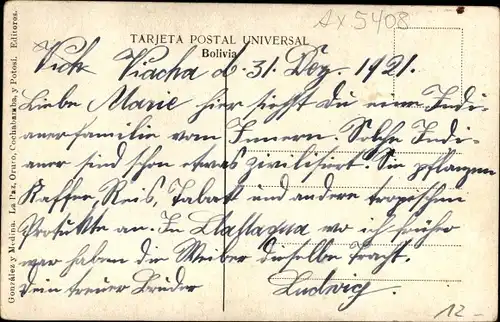 Ax 5408
TARJETA POSTAL UNIVERSAL
Bolivia
Viacha d. 31. Dez. 1921.
Liebe Marie hier siehst Du eine Indi-
anerfamilie vom Innern. Solche Indi-
aner sind schon etwas zivilisiert. Sie pflanzen
Kaffee, Reis, Tabak und andere tropischen
Produkte an. In Llallagua wo ich früher
war haben die Weiber dieselbe Tracht.
Dein treuer Bruder
Ludwig.
12-
González y Medina. La Paz, Oruro, Cochabamba, y Potosí. Editores.